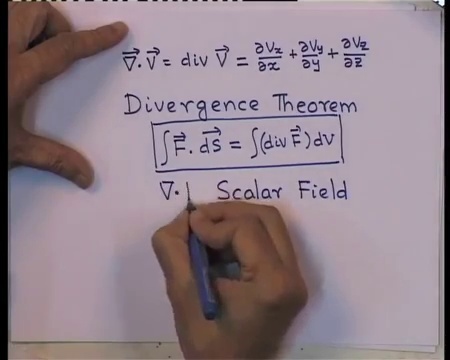 ∇⃗·V⃗ = div V⃗ = ∂Vx/∂x + ∂Vy/∂y + ∂Vz/∂z
Divergence Theorem
∫F⃗.dS⃗ = ∫(div F⃗)dV
∇· Scalar Field